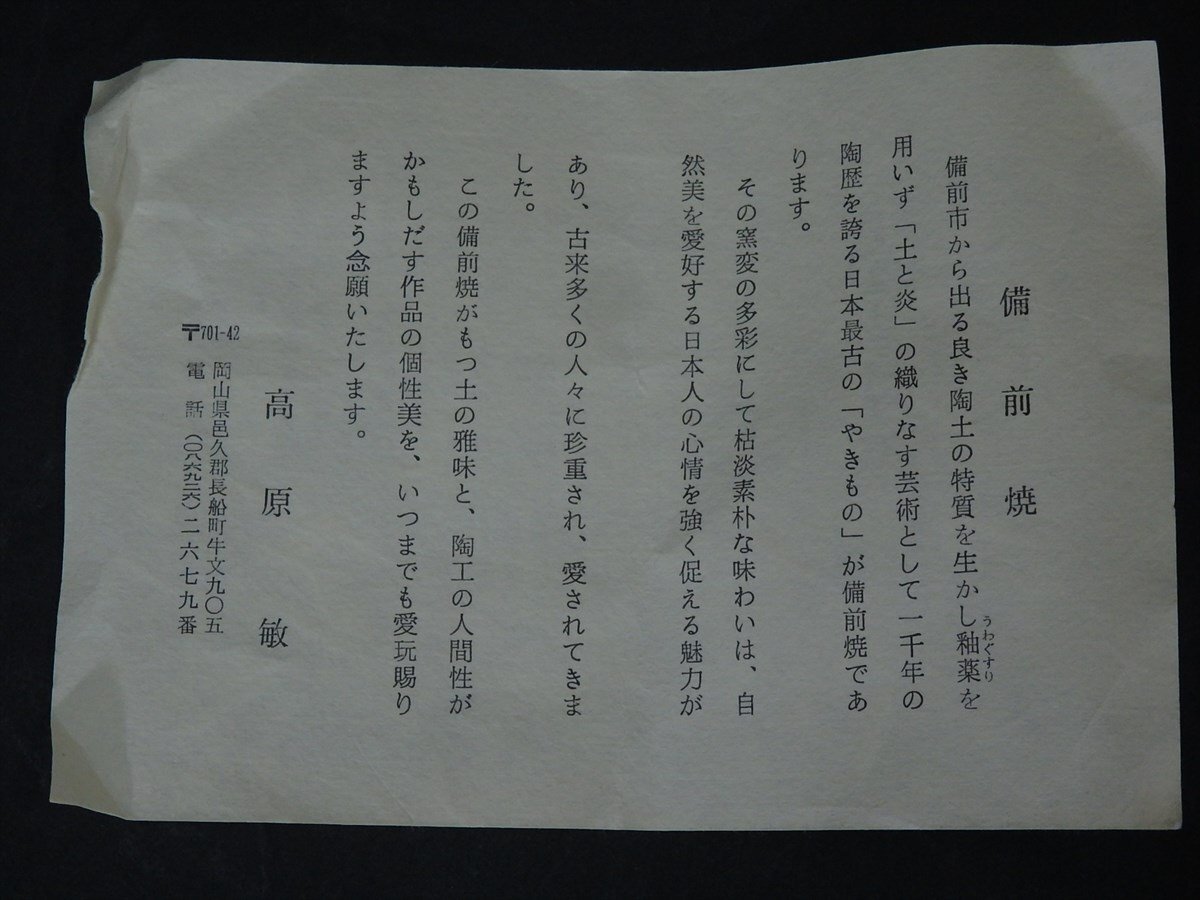 備前焼
備前市から出る良き陶土の特質を生かし釉薬を
うわぐすり
用いず「土と炎」の織りなす芸術として一千年の
陶歴を誇る日本最古の「やきもの」が備前焼であ
ります。
その窯変の多彩にして枯淡素朴な味わいは、自
然美を愛好する日本人の心情を強く促える魅力が
あり、古来多くの人々に珍重され、愛されてきま
した。
この備前焼がもつ土の雅味と、陶工の人間性が
かもしだす作品の個性美を、いつまでも愛玩賜り
ますよう念願いたします。
高原敏
〒701-42
岡山県邑久郡長船町牛文九〇五
電話（〇八六九二六）二六七九番